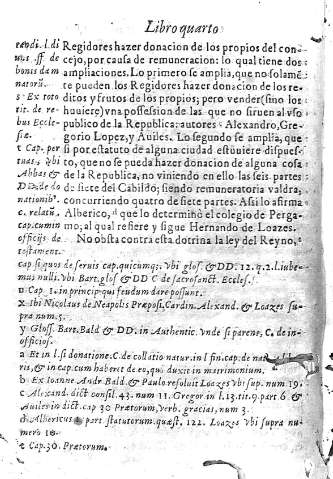 Libro quarto
Regidores hazer donacion de los propios del con-
cejo, por causa de remuneracion: lo qual tiene dos
ampliaciones. Lo primero se amplia, que no solamē
te pueden los Regidores hazer donacion de los re-
ditos y frutos de los propios; pero vender (sino los
huuiere) vna possession de las que no siruen al vso
publico de la Republica: autores Alexandro, Gre-
gorio Lopez, y Auiles. Lo segundo se amplia, que
si por estatuto de alguna ciudad estuuiere dispues-
to, que no se pueda hazer donacion de alguna cosa
de la Republica, no viniendo en ello las seis partes
de siete del Cabildo; siendo remuneratoria valdra,
concurriendo quatro de siete partes. Assi lo afirma
Alberico, que lo determinò el colegio de Perga-
mo; al qual refiere y sigue Hernando de Loazes.
No obsta contra esta dotrina la ley del Reyno,
randi. l. di
bonis dam
natorū.
s Ex toto
rit. de re-
bus Eccle-
siæ.
t Cap. per
tuas,
Abbas &
DD. de do
nationib.
c. relatū.
cap. cum in
officijs. de
testament.
cap. si quos de seruis cap. quicumq;. vbi glos. & DD. 12. q. 2. l. iube-
mus nulli. vbi Bart. glos & DD C de sacrosanct. Eccles.
u Cap. 1. in princip qui feudum dare possunt.
x Ibi Nicolaus de Neapolis Præposi. Cardin. Alexand. & Loazes su-
pra num. 5.
y Gloss. Bart. Bald & DD. in Authentic. vnde si parens, C. de in-
officios.
a Et in l. si donatione. C. de collatio natur. in l fin. cap. de
ris, & in cap. cum haberet de eo, qui duxit in matrimonium.
b Ex Ioanne Andr. Bald & Paulo resoluit Loazes vbi sup. num 19.
c Alexand. dict consil. 43. num 11. Gregor in l. 13. tit. 9. part 6 &
Auiler in dict. cap 30 Prætorum, Verb. gracias, num 3.
d Albericus part statutorum quæst. 122. Loazes vbi supra nu-
mero 18
e Cap. 30. Prætorum.